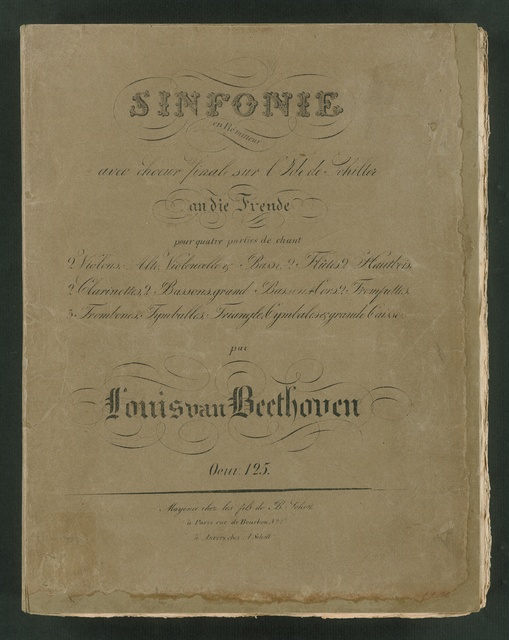 SINFONIE
en Ré mineur
avec choeur final sur l'Ode de Schiller
an die Freude
pour quatre parties de chant
2 Violons, Alto, Violoncelle & Basse, 2 Flûtes, 2 Hautbois,
2 Clarinettes, 2 Bassons, grand Basson, 4 Cors, 2 Trompettes,
3 Trombones, Tymballes, Triangle, Cymbales & grande Caisse
par
Louis van Beethoven
Oeuv. 125.
Mayence chez les fils de B. Schott
à Paris rue de Bourbon, Nº
à Anvers chez A. Schott